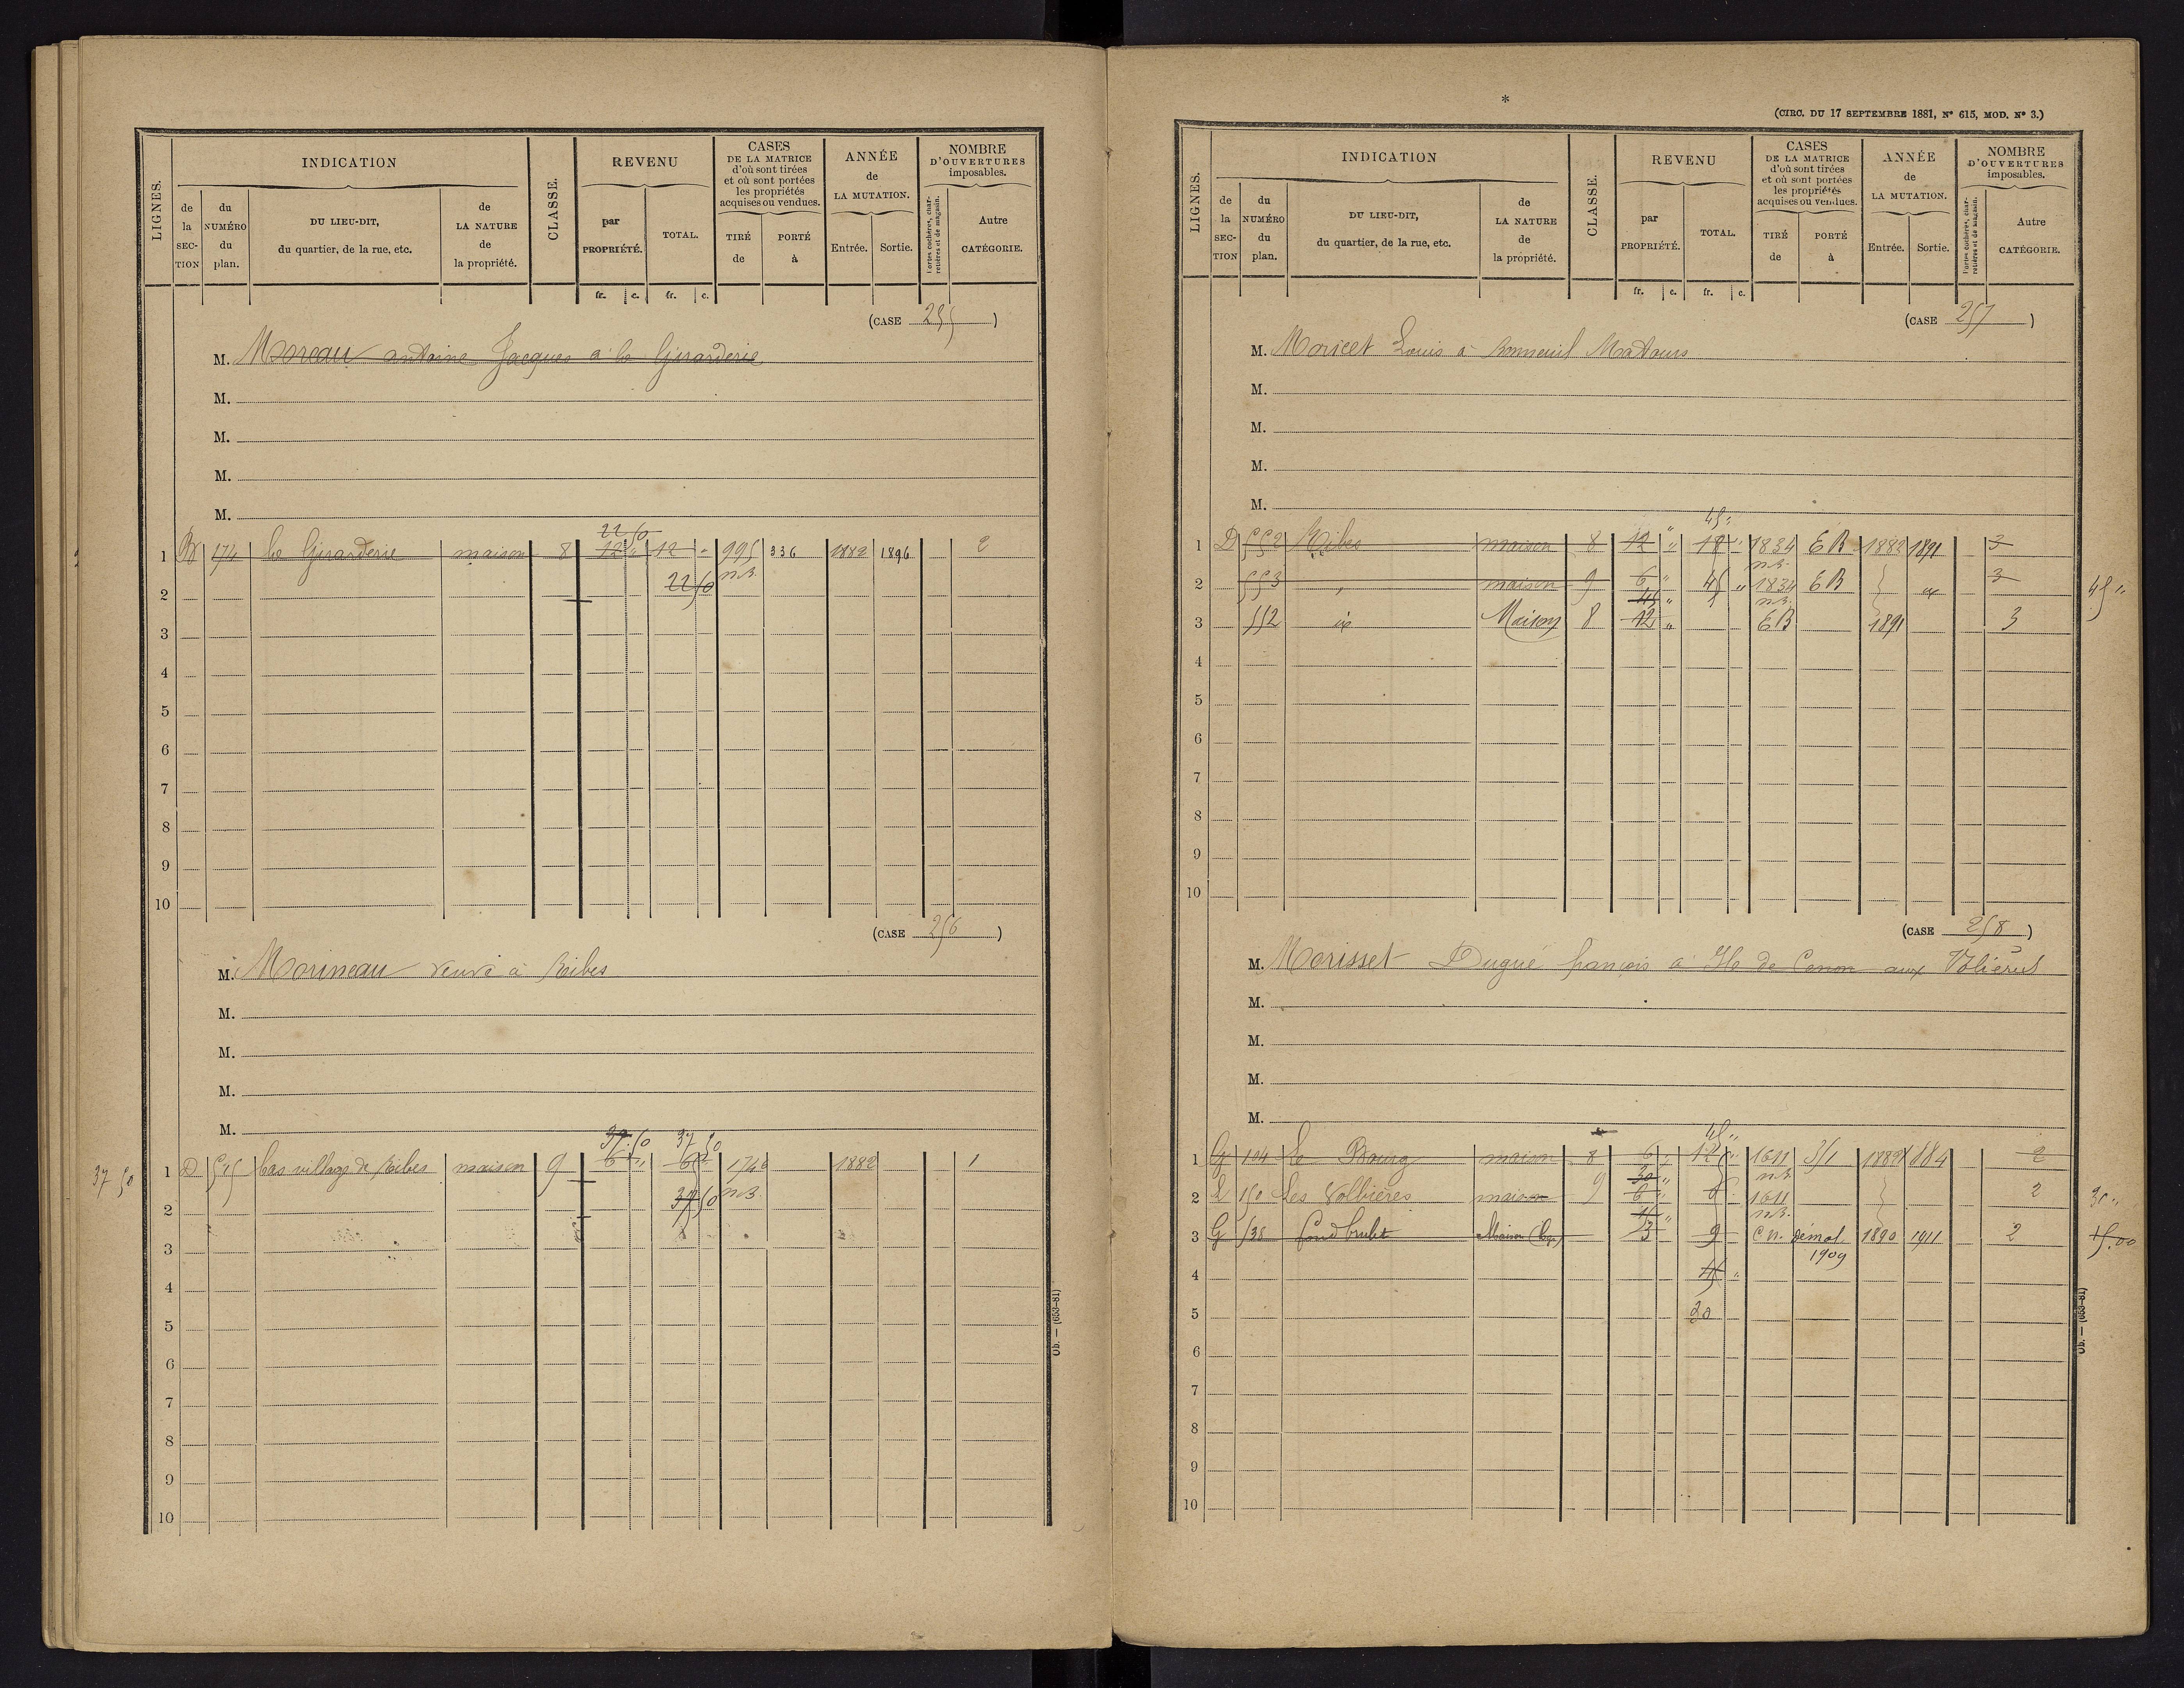 LIGNES.
INDICATION
CLASSE.
REVENU
CASES
DE LA MATRICE
d'où sont tirées
et où sont portées
les propriétés
acquises ou vendues.
ANNÉE
de
LA MUTATION.
NOMBRE
D'OUVERTURES
imposables.
de la SECTION
du NUMÉRO du plan.
DU LIEU-DIT,
du quartier, de la rue, etc.
de LA NATURE de la propriété.
par PROPRIÉTÉ.
TOTAL.
TIRÉ de
PORTÉ à
Entrée.
Sortie.
Portes cochères, charretières et de magasin.
Autre CATÉGORIE.
fr. c. fr. c.
(CASE 255)
M. Moreau antoine Jacques à la Girarderie
M.
M.
M.
M.
22 50
1 174 la Girarderie maison 8 12 " 12 " 995 336 1882 1896 2
2 22 50 n.B.
3
4
5
6
7
8
9
10
(CASE 256)
M. Morineau veuve à Ribes
M.
M.
M.
M.
37.50 37 50
37 50 1 D 515 bas village de Ribes maison 9 6 " 6 1746 1882 1
2 37 50 n.B.
3
4
5
6
7
8
9
10
Ob. — (653-81)
*
(CIRC. DU 17 SEPTEMBRE 1881, N° 615, MOD. N° 3.)
LIGNES.
INDICATION
CLASSE.
REVENU
CASES
DE LA MATRICE
d'où sont tirées
et où sont portées
les propriétés
acquises ou vendues.
ANNÉE
de
LA MUTATION.
NOMBRE
D'OUVERTURES
imposables.
de la SECTION
du NUMÉRO du plan.
DU LIEU-DIT,
du quartier, de la rue, etc.
de LA NATURE de la propriété.
par PROPRIÉTÉ.
TOTAL.
TIRÉ de
PORTÉ à
Entrée.
Sortie.
Portes cochères, charretières et de magasin.
Autre CATÉGORIE.
fr. c. fr. c.
(CASE 257)
M. Moricet Louis à Bonneuil Matours
M.
M.
M.
M.
45 "
1 D 552 Ribes maison 8 12 " 18 " 1834 EB 1882 1891 3
n.B.
2 553 " maison 9 6 " 45 " 1834 EB 3 45 "
45 " n.B.
3 552 Maison 8 12 " EB 1891 3
4
5
6
7
8
9
10
(CASE 258)
M. Morisset Dugué françois à Ile de Cenon aux Volières
M.
M.
M.
M.
45 "
1 G 104 Le Bourg maison 8 6 " 12 " 1611 351 1882 1884 2
30 " n.B.
2 150 Les Volbières maison 9 6 " 1611 2 30 "
15 " n.B.
3 G 138 maison 3 9 C n. démol. 1890 1911 2 15.00
1909
4 45 "
5 30
6
7
8
9
10
Ob. — (653-81)